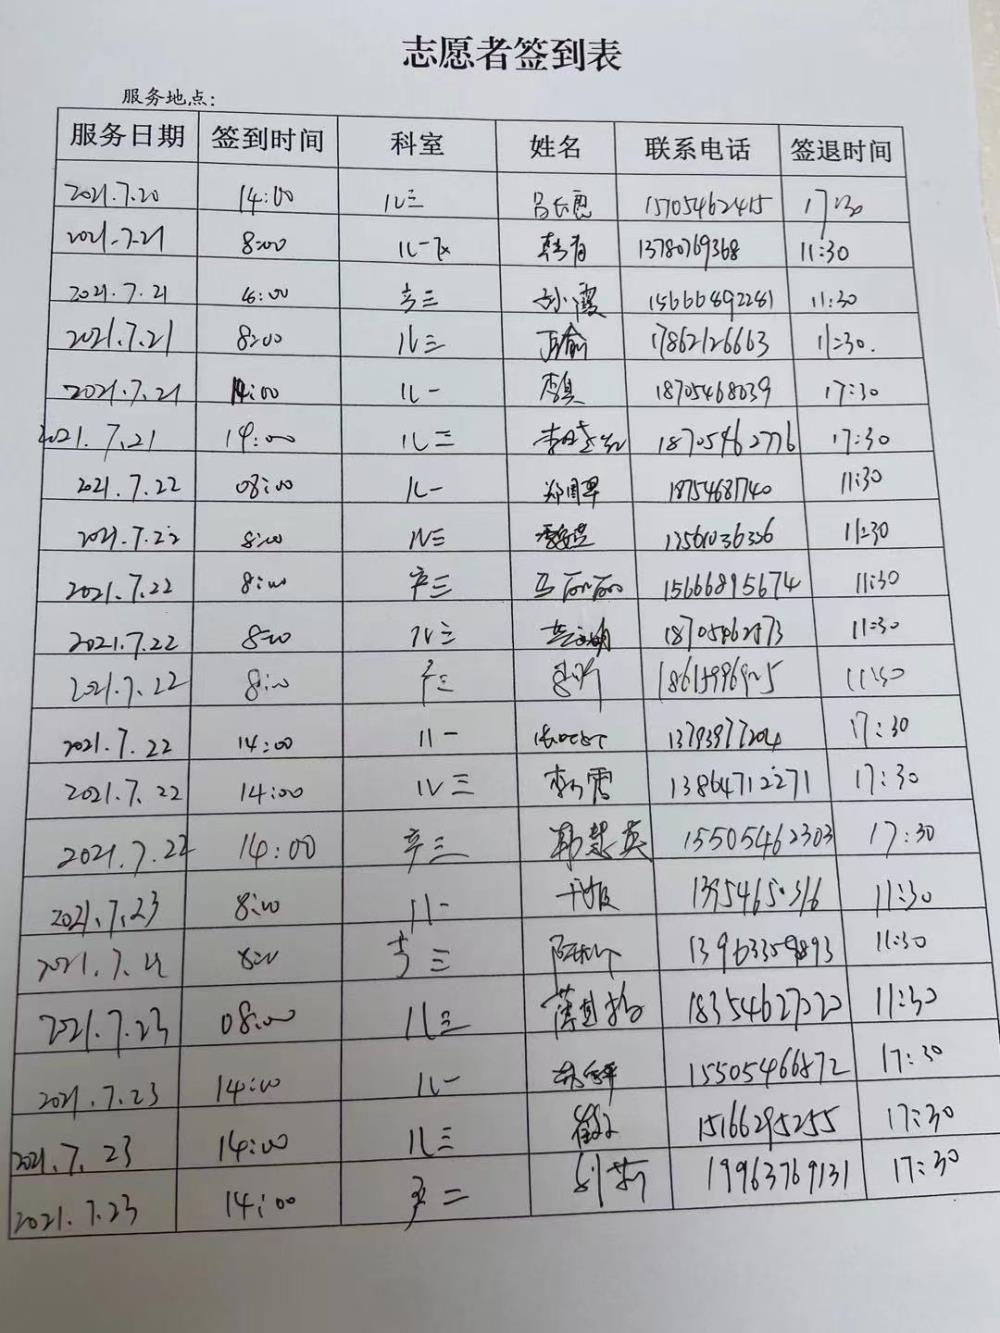 志愿者签到表
服务地点：
服务日期 签到时间 科室 姓名 联系电话 签退时间
2021.7.20 14:00 儿三 吕长惠 15705462415 17:30
2021.7.21 8:00 儿一 13780769368 11:30
2021.7.21 孙霞 15666892281 11:30
2021.7.21 8:00 儿三 17862126663 11:30.
2021.7.21 14:00 儿一 18705468039 17:30
2021.7.21 14:00 儿三 18705462776 17:30
2021.7.22 08:00 儿一 18754681740 11:30
2021.7.22 8:00 儿三 13561036336 11:30
2021.7.22 8:00 产三 马丽丽 15666895674 11:30
2021.7.22 8:00 儿三 11:30
2021.7.22 8:00 产三 11:30
2021.7.22 14:00 儿一 13793977204 17:30
2021.7.22 14:00 儿三 13864712271 17:30
2021.7.22 14:00 产三 韩慧英 15505462303 17:30
2021.7.23 8:00 儿一 11:30
8:00 产三 11:30
2021.7.23 08:00 儿三 18354627020 11:30
2021.7.23 14:00 儿一 15505466872 17:30
2021.7.23 14:00 儿三 15166295255 17:30
2021.7.23 14:00 19963769131 17:30